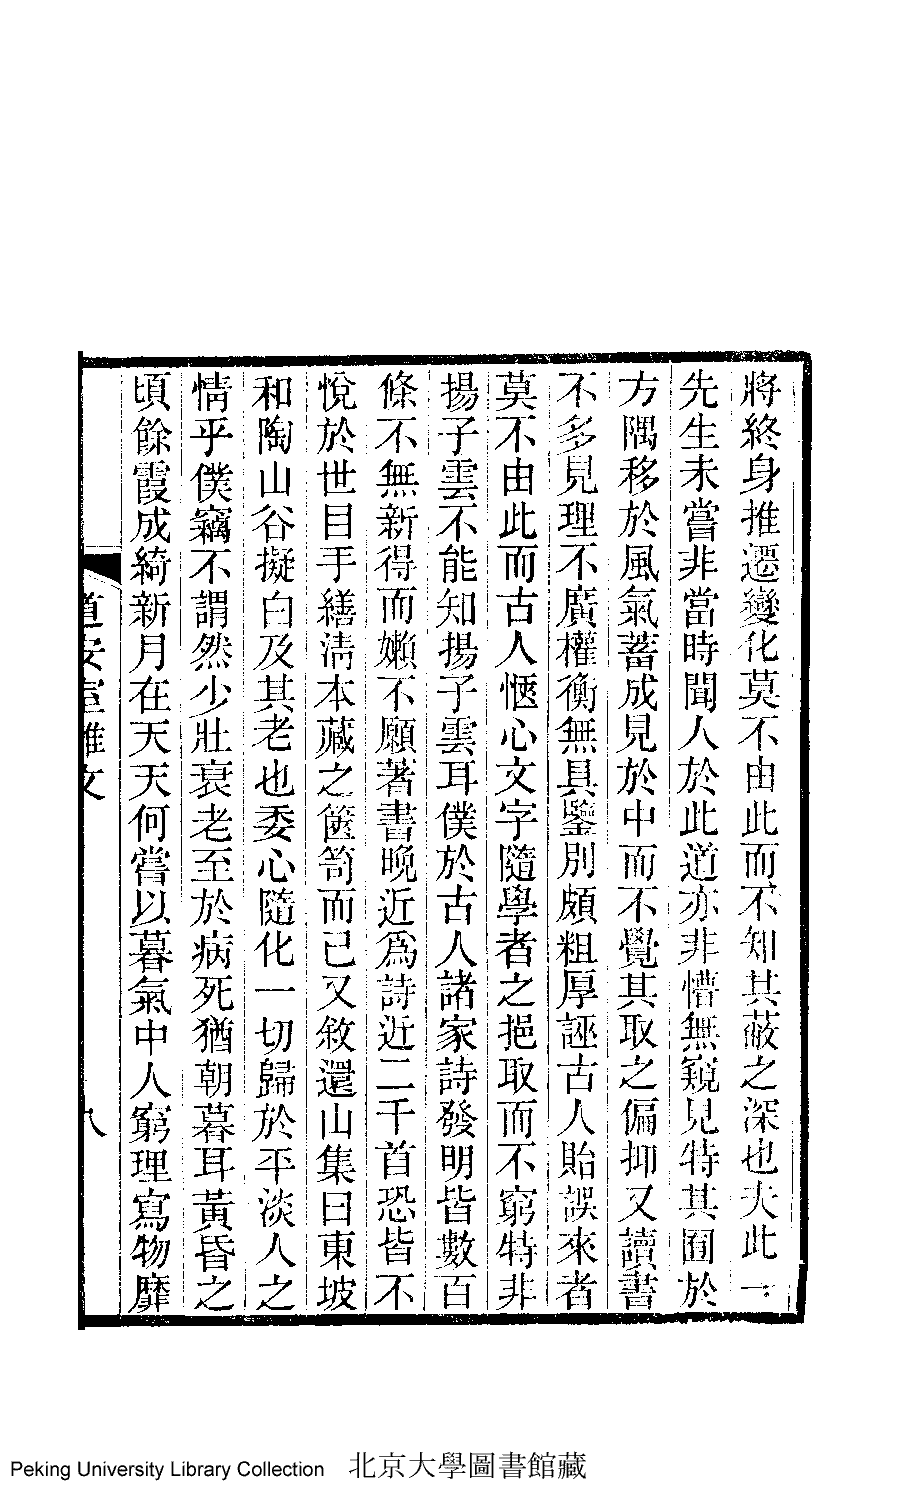 將終身推遷變化莫不由此而不知其蔽之深也夫此一
先生未嘗非當時聞人於此道亦非懵無窺見特其囿於
方隅移於風氣蓄成見於中而不覺其取之偏抑又讀書
不多見理不廣權衡無具鑒別頗粗厚誣古人貽誤來者
莫不由此而古人愜心文字隨學者之挹取而不窮特非
揚子雲不能知揚子雲耳僕於古人諸家詩發明皆數百
條不無新得而嬾不願著書晚近爲詩近二千首恐皆不
悅於世目手繕淸本藏之篋笥而已又敘還山集曰東坡
和陶山谷擬白及其老也委心隨化一切歸於平淡人之
情乎僕竊不謂然少壯衰老至於病死猶朝暮耳黃昏之
頃餘霞成綺新月在天天何嘗以暮氣中人窮理寫物靡
道安室雜文
八
Peking University Library Collection 北京大學圖書館藏